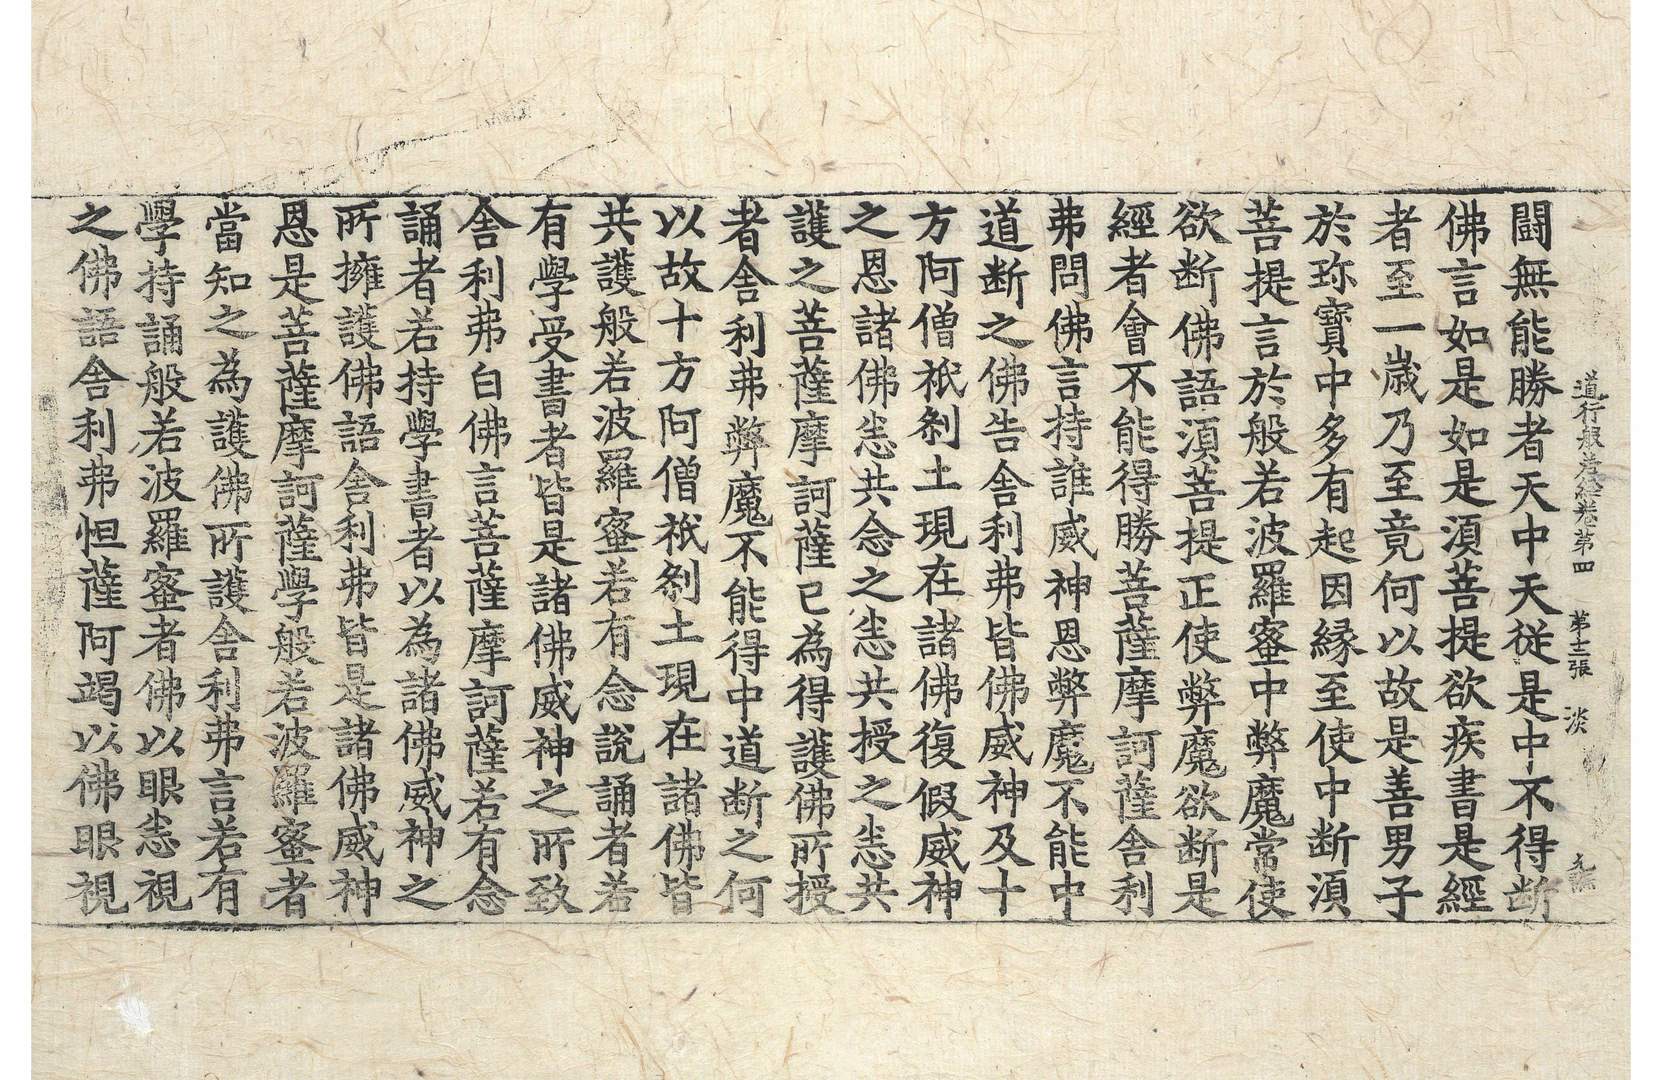 道行般若經卷第四 第十二張 淡
鬪無能勝者天中天從是中不得断
佛言如是如是湏菩提欲疾書是經
者至一歳乃至竟何以故是善男子
於珎寶中多有起因縁至使中断湏
菩提言於般若波羅蜜中弊魔常使
欲断佛語湏菩提正使弊魔欲断是
經者會不能得勝菩薩摩訶薩舎利
弗問佛言持誰威神恩弊魔不能中
道断之佛告舎利弗皆佛威神及十
方阿僧祇刹土現在諸佛復假威神
之恩諸佛悉共念之悉共授之悉共
護之菩薩摩訶薩已為得護佛所授
者舎利弗弊魔不能得中道断之何
以故十方阿僧祇刹土現在諸佛皆
共護般若波羅蜜若有念說誦者若
有學受書者皆是諸佛威神之所致
舎利弗白佛言菩薩摩訶薩若有念
誦者若持學書者以為諸佛威神之
所擁護佛語舎利弗皆是諸佛威神
恩是菩薩摩訶薩學般若波羅蜜者
當知之為護佛所護舎利弗言若有
學持誦般若波羅蜜者佛以眼悉視
之佛語舎利弗怛薩阿竭以佛眼視